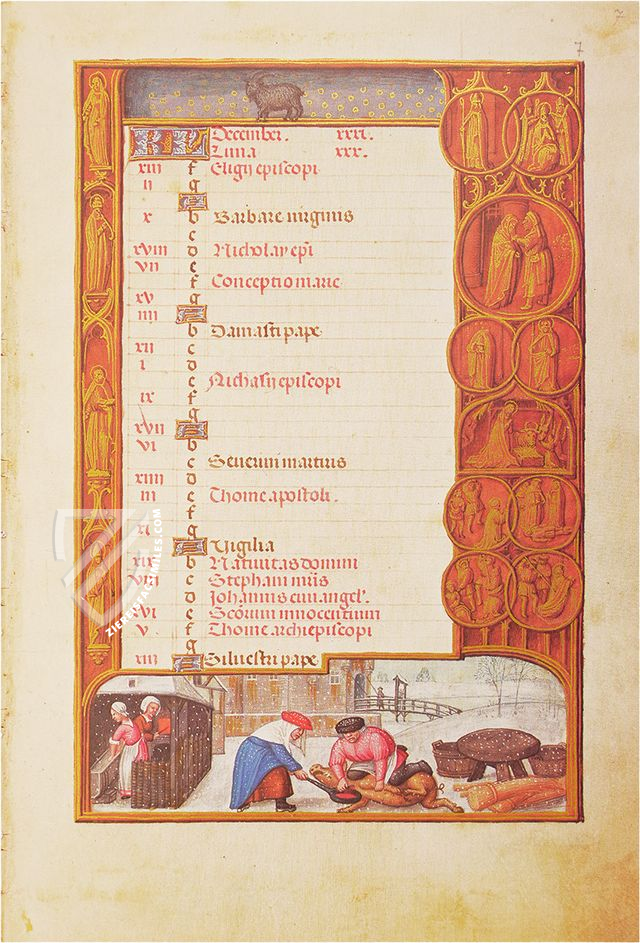 7
7
KL December. xxxi.
Luna xxx.
xiii f Eligii episcopi
ii g
A
x b Barbare virginis
c
xviii d Nicholay epi
vii e
f Conceptio marie
xv g
iiii A
b Damasi pape
xii c
i d
e Nichasii episcopi
ix f
g
xvii A
vi b
c Severini martiris
xiiii d
iii e Thome apostoli.
f
xi g
A Vigilia
xix b Nativitas domini
viii c Stephani mris
d Johannis euangel'.
xvi e Scorum innocentium
v f Thome archiepiscopi
g
xiii A Silvestri pape
ZIEREIS FACSIMILES.COM